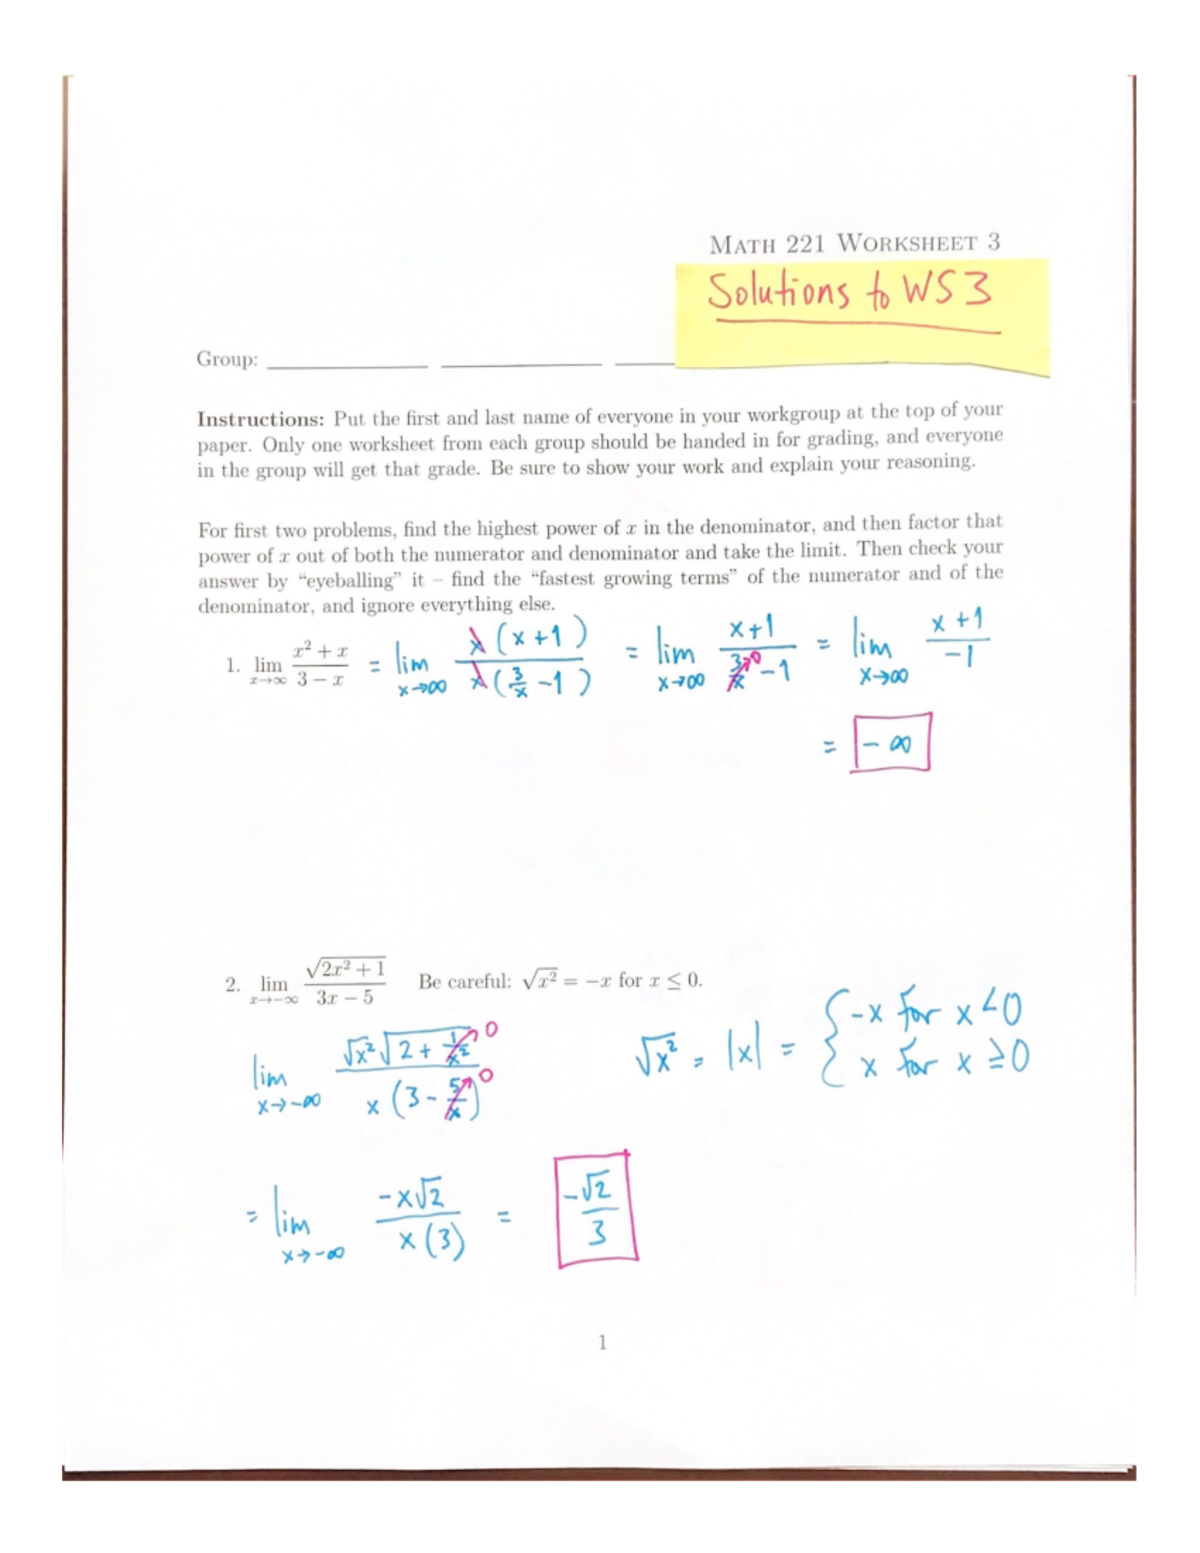 MATH 221 WORKSHEET 3
Solutions to WS3
Group:
Instructions: Put the first and last name of everyone in your workgroup at the top of your
paper. Only one worksheet from each group should be handed in for grading, and everyone
in the group will get that grade. Be sure to show your work and explain your reasoning.
For first two problems, find the highest power of x in the denominator, and then factor that
power of x out of both the numerator and denominator and take the limit. Then check your
answer by “eyeballing” it – find the “fastest growing terms” of the numerator and of the
denominator, and ignore everything else.
1. lim x→∞ (x² + x)/(3 − x) = lim x→∞ x(x+1)/x(3/x −1) = lim x→∞ (x+1)/(3/x→0 −1) = lim x→∞ (x+1)/−1
= −∞
2. lim x→−∞ √(2x² + 1)/(3x − 5) Be careful: √x² = −x for x ≤ 0.
lim x→−∞ √x² √(2 + 1/x²→0)/x(3 − 5/x→0) √x² = |x| = { −x for x<0
x for x ≥ 0
= lim x→−∞ −x√2/x(3) = −√2/3
1